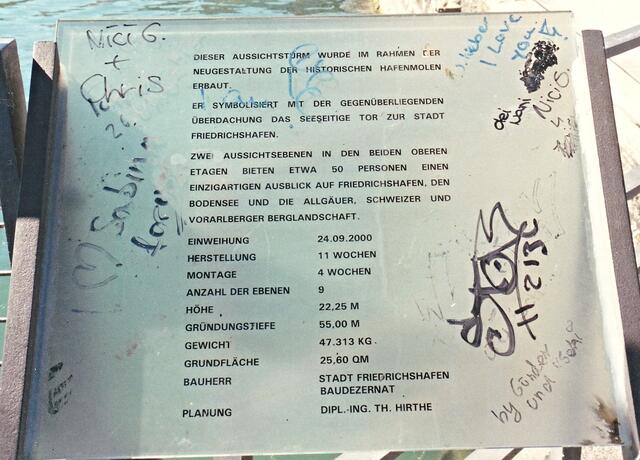 DIESER AUSSICHTSTURM WURDE IM RAHMEN DER
NEUGESTALTUNG DER HISTORISCHEN HAFENMOLEN
ERBAUT.
ER SYMBOLISIERT MIT DER GEGENÜBERLIEGENDEN
ÜBERDACHUNG DAS SEESEITIGE TOR ZUR STADT
FRIEDRICHSHAFEN.
ZWEI AUSSICHTSEBENEN IN DEN BEIDEN OBEREN
ETAGEN BIETEN ETWA 50 PERSONEN EINEN
EINZIGARTIGEN AUSBLICK AUF FRIEDRICHSHAFEN, DEN
BODENSEE UND DIE ALLGÄUER, SCHWEIZER UND
VORARLBERGER BERGLANDSCHAFT.
EINWEIHUNG 24.09.2000
HERSTELLUNG 11 WOCHEN
MONTAGE 4 WOCHEN
ANZAHL DER EBENEN 9
HÖHE 22,25 M
GRÜNDUNGSTIEFE 55,00 M
GEWICHT 47.313 KG
GRUNDFLÄCHE 25,60 QM
BAUHERR STADT FRIEDRICHSHAFEN
BAUDEZERNAT
PLANUNG DIPL.-ING. TH. HIRTHE
Nici G.
+
Chris
Sabin
I Love
You
Nici G.
by Günther
und